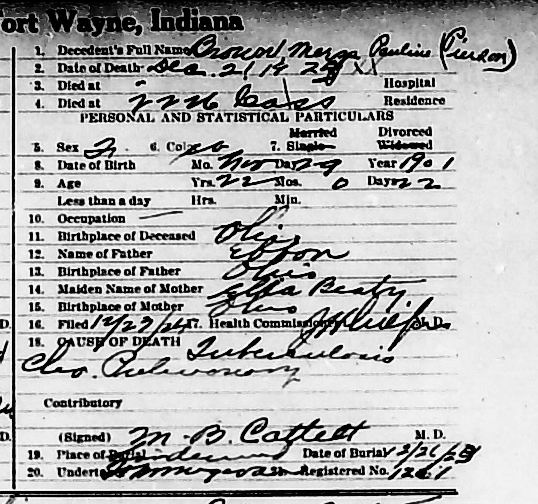 ort Wayne, Indiana
1. Decedent's Full Name Mary Pauline (Pierson)
2. Date of Death Dec. 21
3. Died at Hospital
4. Died at Cass Residence
PERSONAL AND STATISTICAL PARTICULARS
Married Divorced
5. Sex F. 6. Color 7. Single Widowed
8. Date of Birth Mo. Nov Day 29 Year 1901
9. Age Yrs. 22 Mos. 0 Days 22
Less than a day Hrs. Min.
10. Occupation —
11. Birthplace of Deceased Ohio
12. Name of Father
13. Birthplace of Father Ohio
14. Maiden Name of Mother Ella Beaty
15. Birthplace of Mother Ohio
D. 16. Filed 17. Health Commissioner M. D.
18. CAUSE OF DEATH Tuberculosis
Chro. Pulmonary
Contributory
D. (Signed) M. B. Catlett M. D.
19. Place of Burial Lindenwood Date of Burial
20. Undertaker Registered No.